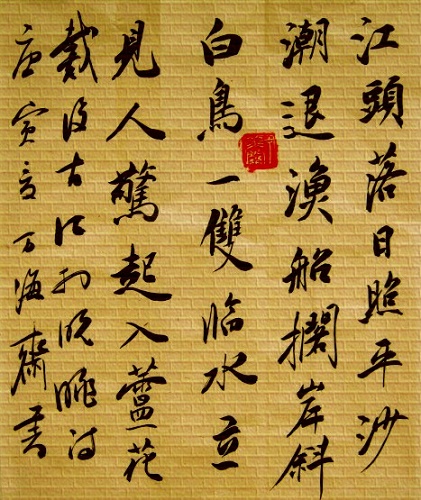 江頭落日照平沙
潮退漁船擱岸斜
白鳥一雙臨水立
見人驚起入蘆花
戴復古江村晚眺詩
庚寅海齋書